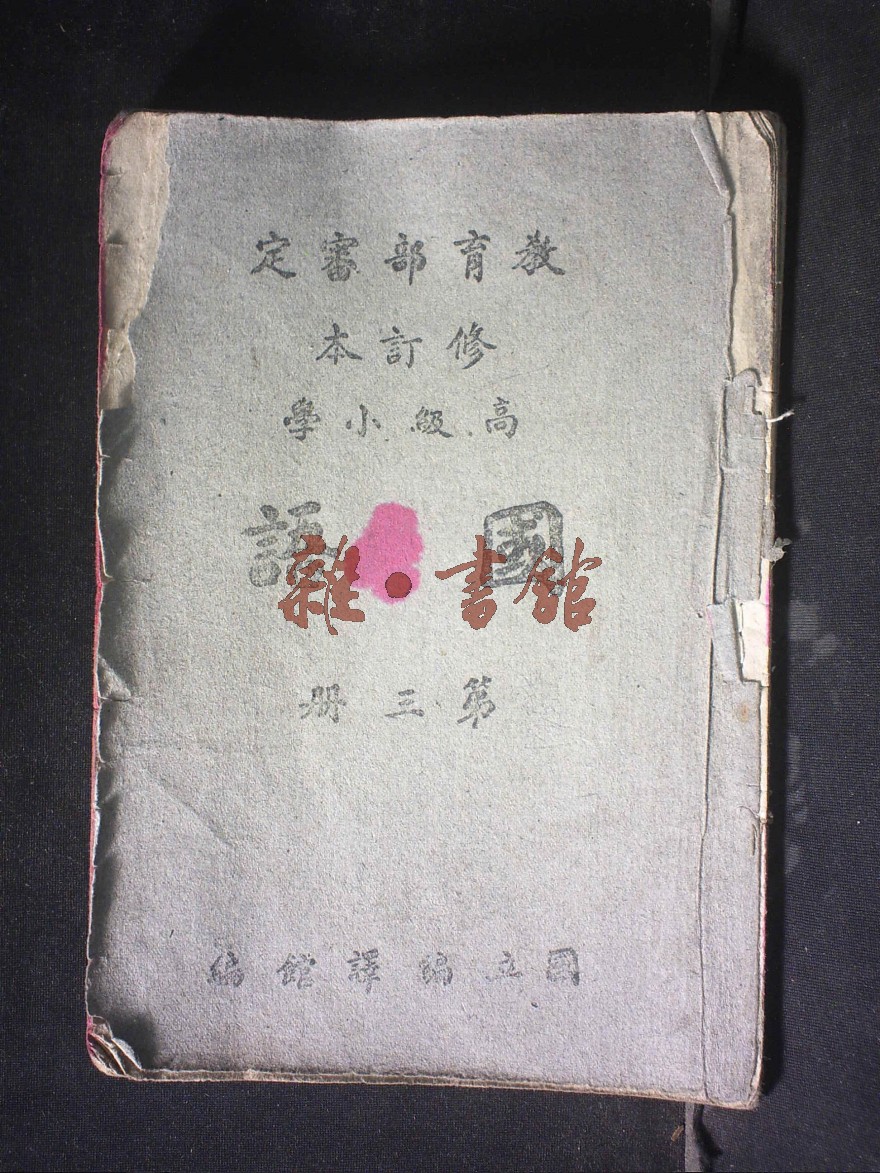 教育部審定
修訂本
高級小學
國語
雜·書館
第三册
國立編譯館編